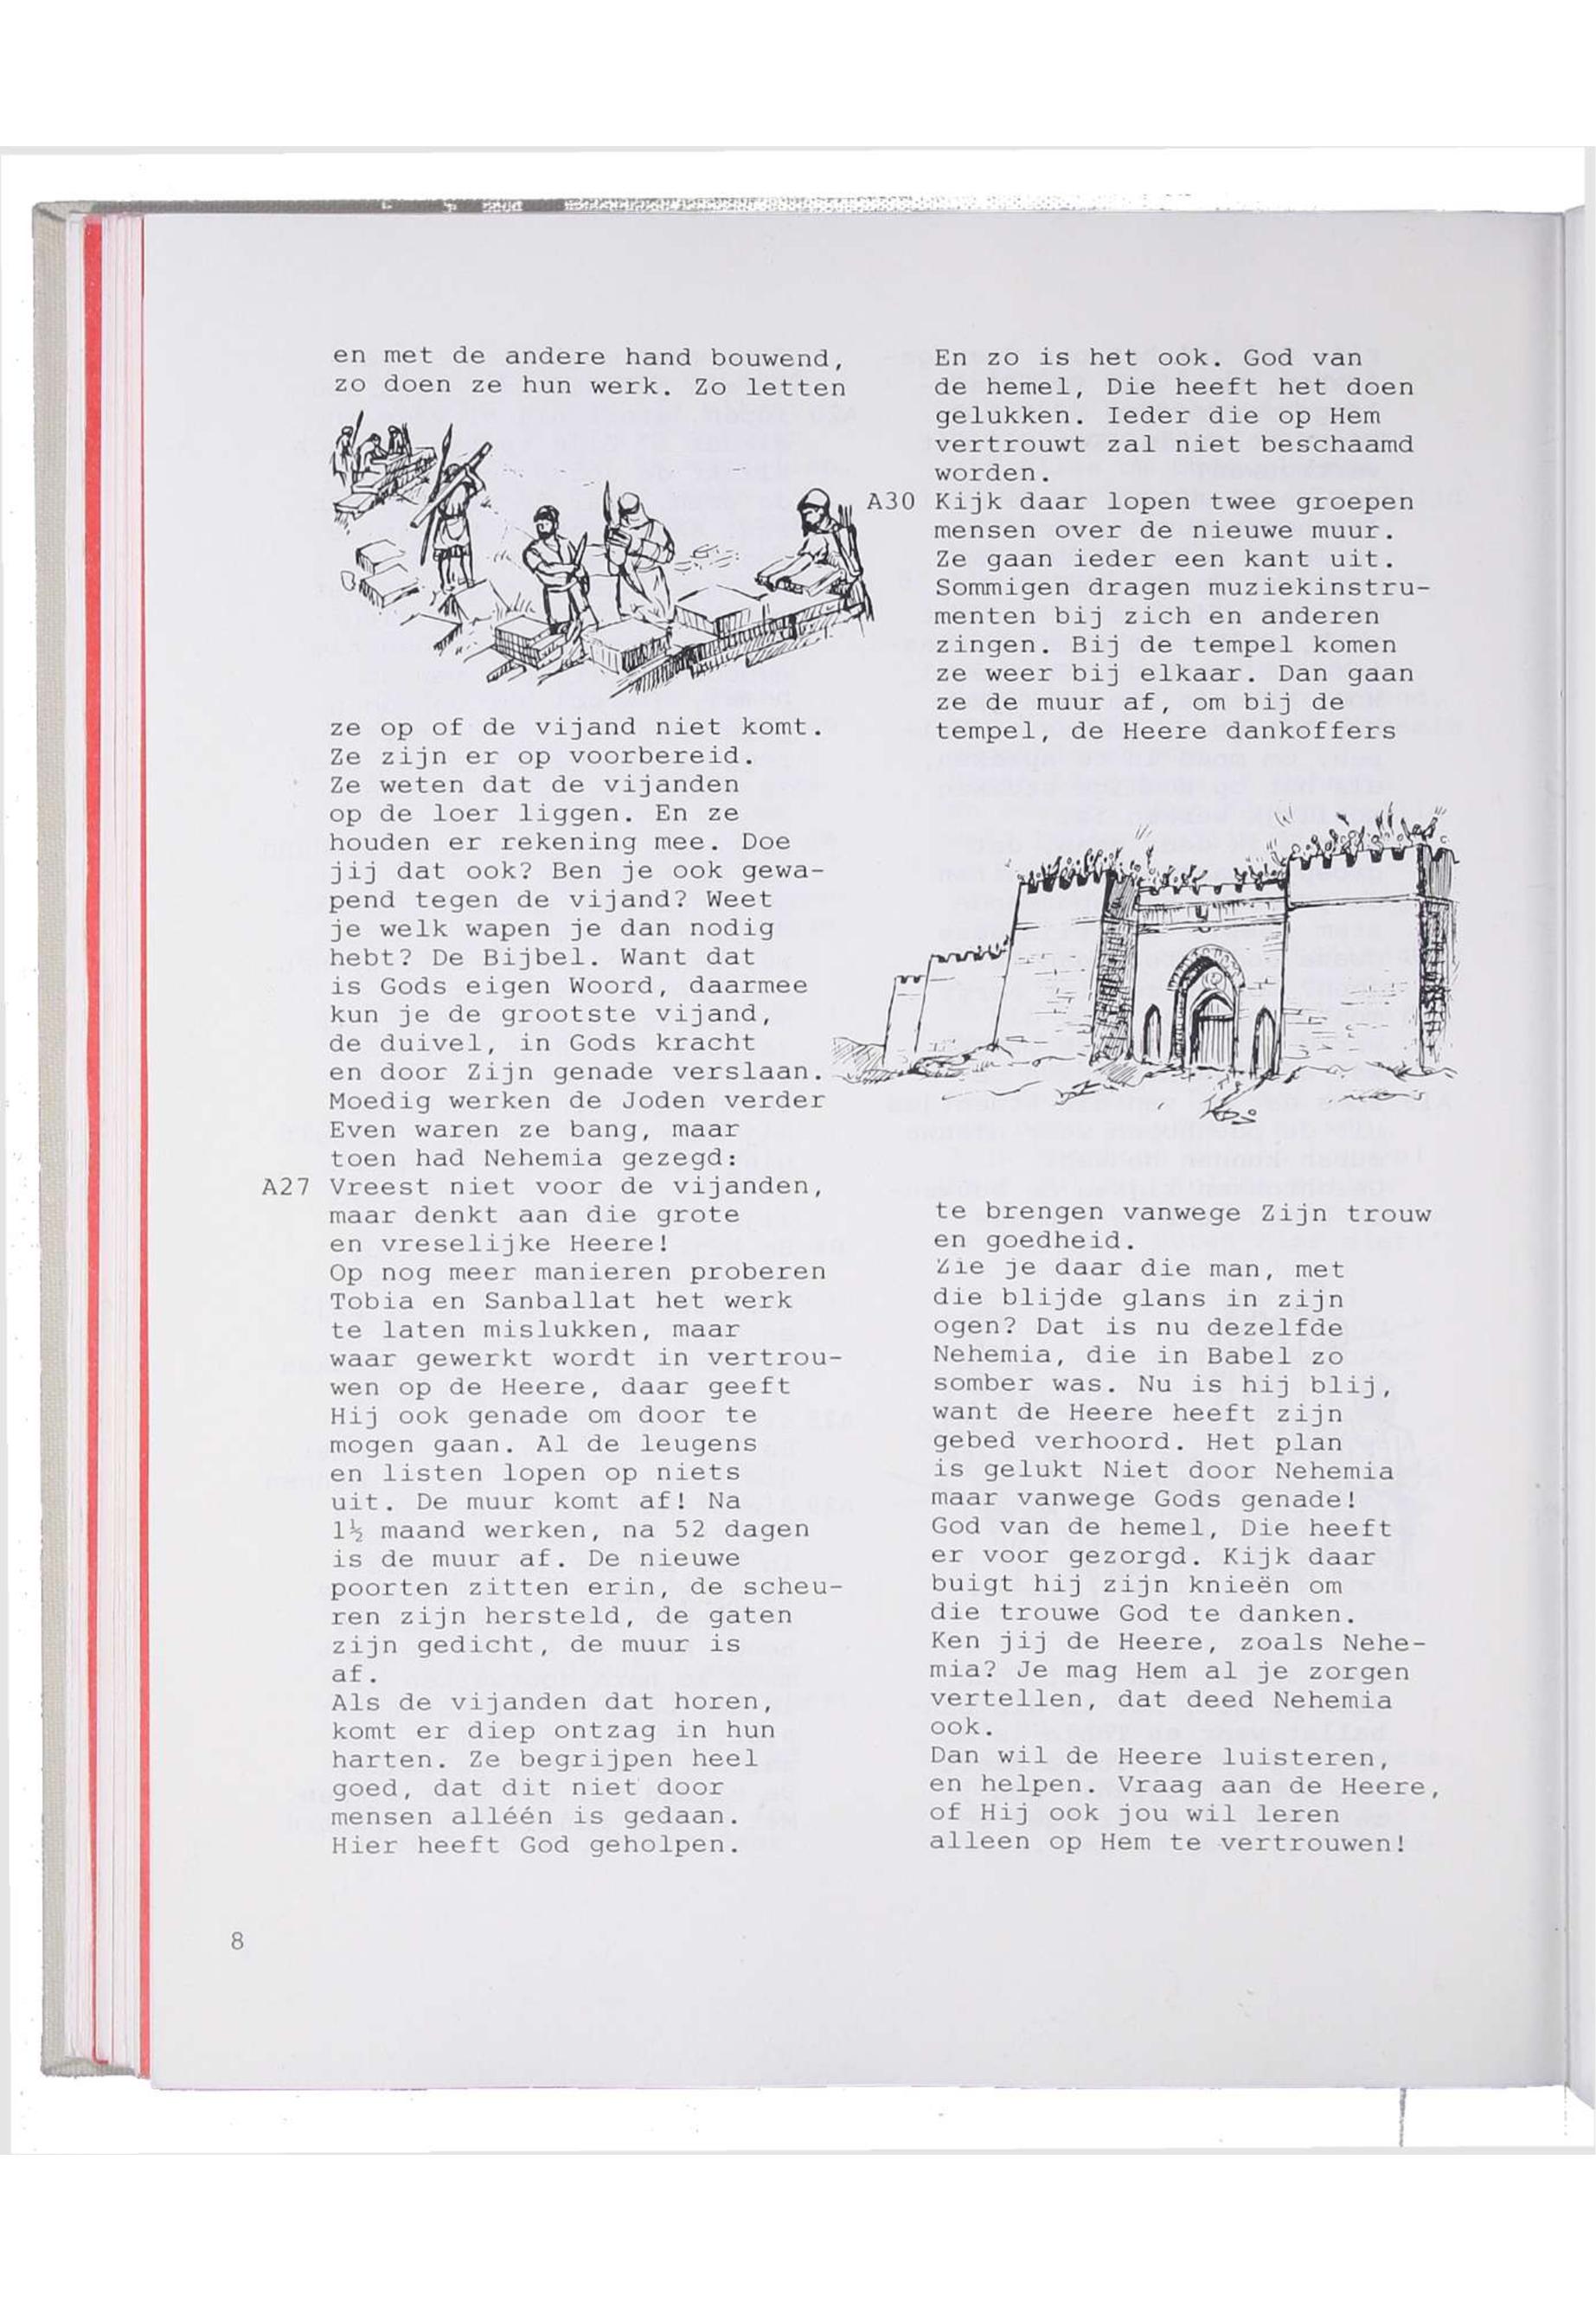 en met de andere hand bouwend,
zo doen ze hun werk. Zo letten
ze op of de vijand niet komt.
Ze zijn er op voorbereid.
Ze weten dat de vijanden
op de loer liggen. En ze
houden er rekening mee. Doe
jij dat ook? Ben je ook gewa-
pend tegen de vijand? Weet
je welk wapen je dan nodig
hebt? De Bijbel. Want dat
is Gods eigen Woord, daarmee
kun je de grootste vijand,
de duivel, in Gods kracht
en door Zijn genade verslaan.
Moedig werken de Joden verder
Even waren ze bang, maar
toen had Nehemia gezegd:
A27 Vreest niet voor de vijanden,
maar denkt aan die grote
en vreselijke Heere!
Op nog meer manieren proberen
Tobia en Sanballat het werk
te laten mislukken, maar
waar gewerkt wordt in vertrou-
wen op de Heere, daar geeft
Hij ook genade om door te
mogen gaan. Al de leugens
en listen lopen op niets
uit. De muur komt af! Na
1½ maand werken, na 52 dagen
is de muur af. De nieuwe
poorten zitten erin, de scheu-
ren zijn hersteld, de gaten
zijn gedicht, de muur is
af.
Als de vijanden dat horen,
komt er diep ontzag in hun
harten. Ze begrijpen heel
goed, dat dit niet door
mensen alléén is gedaan.
Hier heeft God geholpen.
En zo is het ook. God van
de hemel, Die heeft het doen
gelukken. Ieder die op Hem
vertrouwt zal niet beschaamd
worden.
A30 Kijk daar lopen twee groepen
mensen over de nieuwe muur.
Ze gaan ieder een kant uit.
Sommigen dragen muziekinstru-
menten bij zich en anderen
zingen. Bij de tempel komen
ze weer bij elkaar. Dan gaan
ze de muur af, om bij de
tempel, de Heere dankoffers
te brengen vanwege Zijn trouw
en goedheid.
Zie je daar die man, met
die blijde glans in zijn
ogen? Dat is nu dezelfde
Nehemia, die in Babel zo
somber was. Nu is hij blij,
want de Heere heeft zijn
gebed verhoord. Het plan
is gelukt Niet door Nehemia
maar vanwege Gods genade!
God van de hemel, Die heeft
er voor gezorgd. Kijk daar
buigt hij zijn knieën om
die trouwe God te danken.
Ken jij de Heere, zoals Nehe-
mia? Je mag Hem al je zorgen
vertellen, dat deed Nehemia
ook.
Dan wil de Heere luisteren,
en helpen. Vraag aan de Heere,
of Hij ook jou wil leren
alleen op Hem te vertrouwen!
8